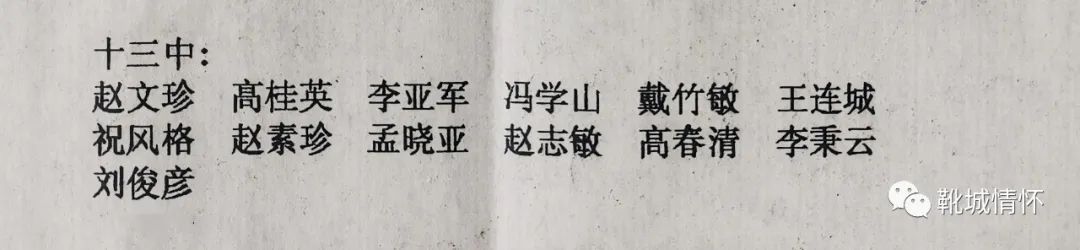 十三中：
赵文珍 髙桂英 李亚军 冯学山 戴竹敏 王连城
祝风格 赵素珍 孟晓亚 赵志敏 髙春清 李秉云
刘俊彦
靴城情怀